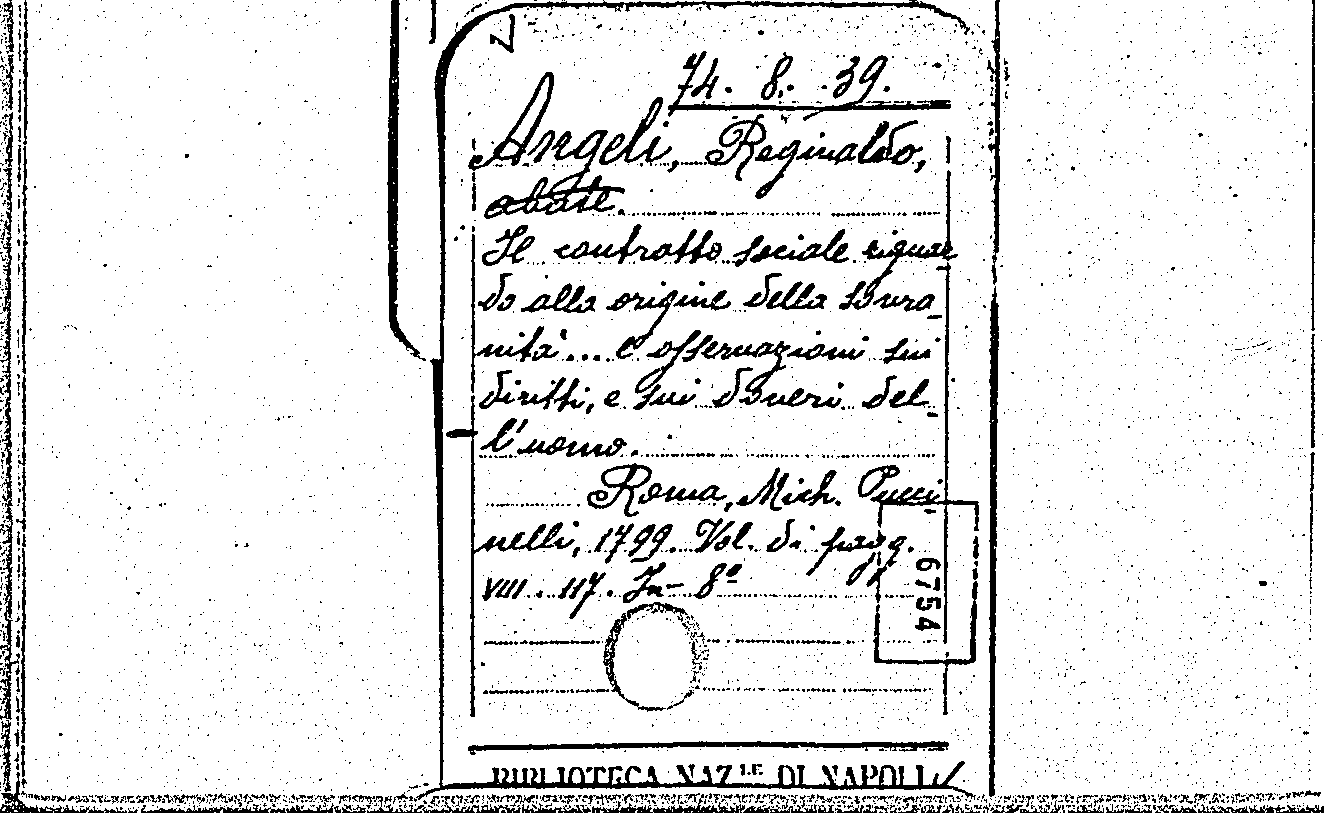 74. 8. 39.
Angeli, Reginaldo,
abate.
Il contratto sociale riguar
do alla origine della sovra_
nità... e osservazioni sui
diritti, e sui doveri del_
l'uomo.
Roma, Mich. Pucci_
nelli, 1799. Vol. di pagg.
VIII. 117. In-8º
6754
BIBLIOTECA NAZ.LE DI NAPOLI